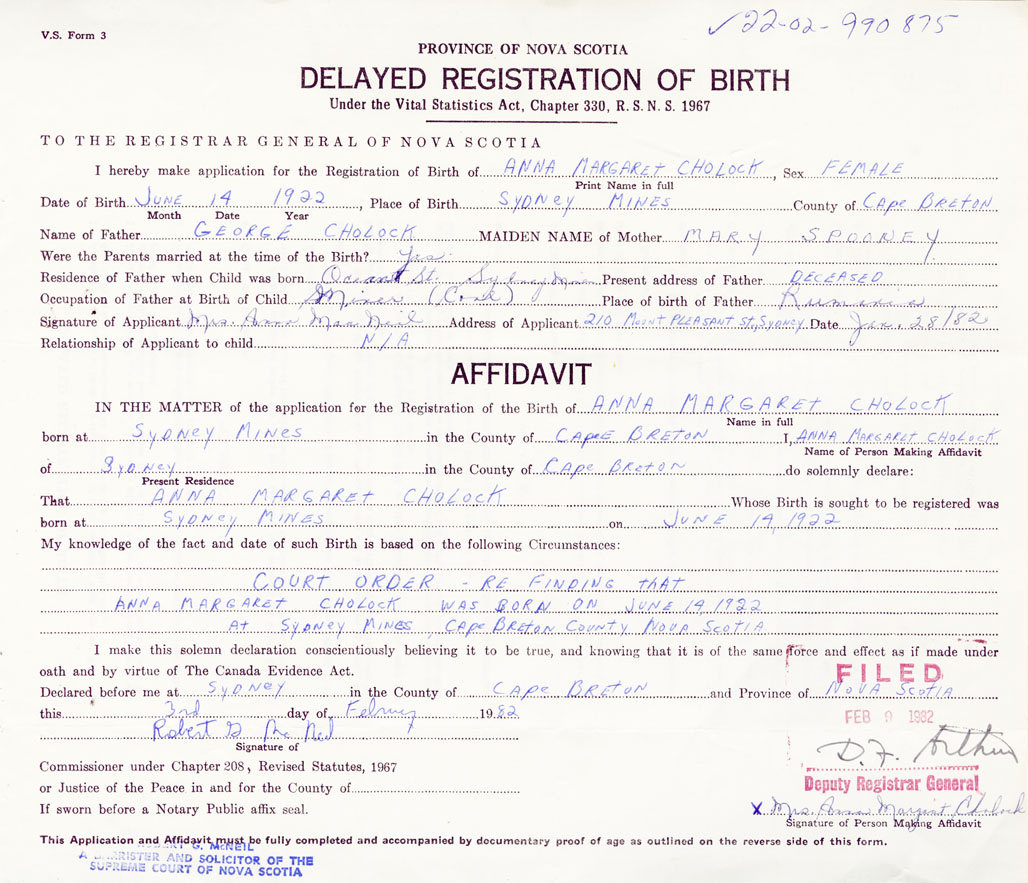 ✓22-02-990875
V.S. Form 3
PROVINCE OF NOVA SCOTIA
DELAYED REGISTRATION OF BIRTH
Under the Vital Statistics Act, Chapter 330, R. S. N. S. 1967
TO THE REGISTRAR GENERAL OF NOVA SCOTIA
I hereby make application for the Registration of Birth of ANNA MARGARET CHOLOCK, Sex FEMALE
Print Name in full
Date of Birth JUNE 14 1922, Place of Birth SYDNEY MINES County of CAPE BRETON
Month Date Year
Name of Father GEORGE CHOLOCK MAIDEN NAME of Mother MARY SPOONEY
Were the Parents married at the time of the Birth? Yes.
Residence of Father when Child was born Ocean St. Sydney Mines Present address of Father DECEASED
Occupation of Father at Birth of Child Miner (Coal) Place of birth of Father Rumania
Signature of Applicant Mrs. Anna MacNeil Address of Applicant 210 MOUNT PLEASANT ST., SYDNEY Date Jan. 28/82
Relationship of Applicant to child N/A
AFFIDAVIT
IN THE MATTER of the application for the Registration of the Birth of ANNA MARGARET CHOLOCK
Name in full
born at SYDNEY MINES in the County of CAPEE BRETON I, ANNA MARGARET CHOLOCK
Name of Person Making Affidavit
of SYDNEY in the County of CAPE BRETON do solemnly declare:
Present Residence
That ANNA MARGARET CHOLOCK Whose Birth is sought to be registered was
born at SYDNEY MINES on JUNE 14, 1922
My knowledge of the fact and date of such Birth is based on the following Circumstances:
COURT ORDER - RE FINDING THAT
ANNA MARGARET CHOLOCK WAS BORN ON JUNE 14 1922
AT SYDNEY MINES, CAPE BRETON COUNTY NOVA SCOTIA
I make this solemn declaration conscientiously believing it to be true, and knowing that it is of the same force and effect as if made under
oath and by virtue of The Canada Evidence Act.
FILED
Declared before me at SYDNEY in the County of CAPE BRETON and Province of NOVA SCOTIA
this 3rd day of Februy 1982
FEB 9 1982
Robert G. McNeil
Signature of
D.F. Arthur
Commissioner under Chapter 208, Revised Statutes, 1967
Deputy Registrar General
or Justice of the Peace in and for the County of
If sworn before a Notary Public affix seal.
X Mrs. Anna Margret Cholock
Signature of Person Making Affidavit
This Application and Affidavit must be fully completed and accompanied by documentary proof of age as outlined on the reverse side of this form.
G. McNEIL
A BARRISTER AND SOLICITOR OF THE
SUPREME COURT OF NOVA SCOTIA